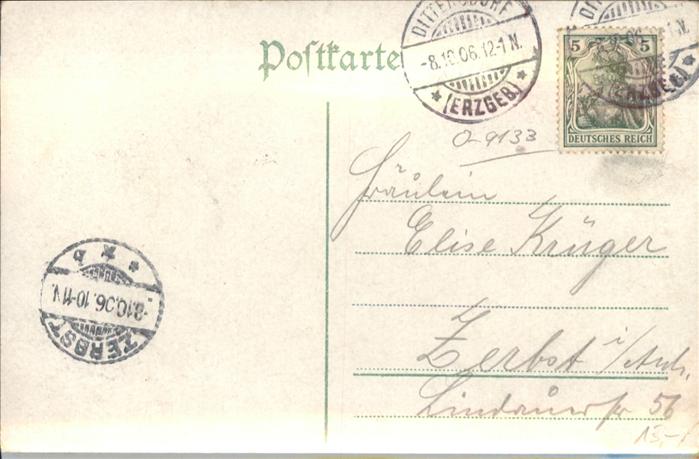 Postkarte
DITTERSDORF
-8.10.06.12-1N.
* (ERZGEB.) *
DI
5 5
DEUTSCHES REICH
O-9133
Fräulein
Elise Krüger
Zerbst i/Anh.
Lindauer str 56
15,-
ZERBST
-9.10.06.10-11V.
* * b